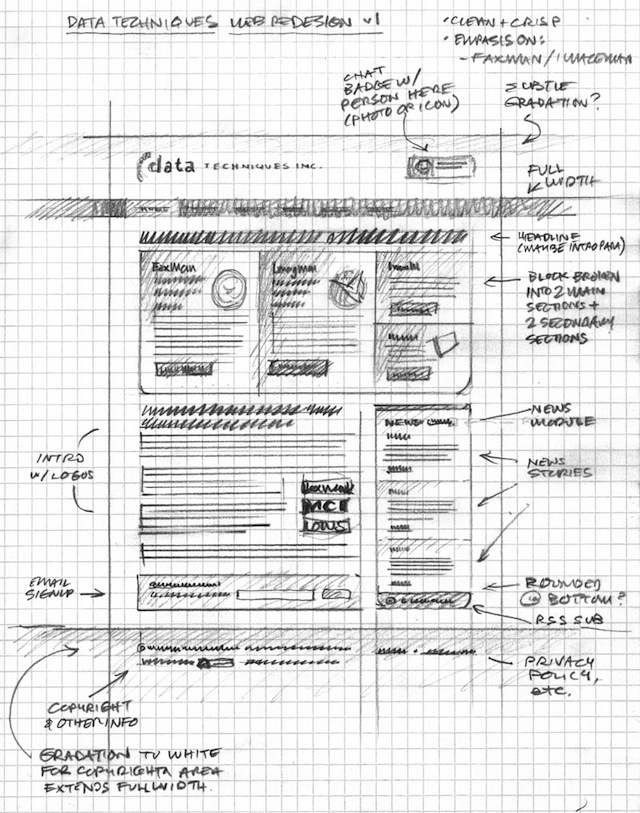 DATA TECHNIQUES WEB REDESIGN v1
• CLEAN + CRISP
• EMPASIS ON:
- FAXMAN / IMAGEMAN
CHAT
BADGE W/
PERSON HERE
(PHOTO OR ICON)
SUBTLE
GRADATION?
data TECHNIQUES INC.
FULL
WIDTH
HEADLINE
(MAYBE INTRO PARA)
FaxMan
BLOCK BROKEN
INTO 2 MAIN
SECTIONS +
2 SECONDARY
SECTIONS
NEWS
MODULE
INTRO
W/ LOGOS
NEWS
STORIES
MCI
EMAIL
SIGNUP
ROUNDED
@ BOTTOM?
RSS SUB
PRIVACY
POLICY,
etc.
COPYRIGHT
& OTHER INFO
GRADATION TO WHITE
FOR COPYRIGHT AREA
EXTENDS FULL WIDTH.